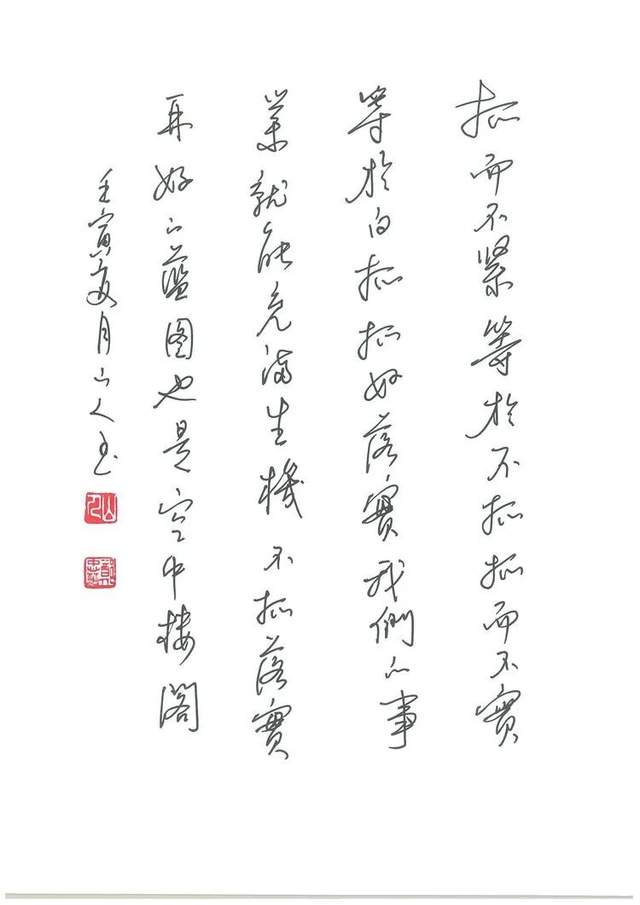 抓而不緊等於不抓抓而不實
等於白抓抓好落實我們的事
業就能充滿生機不抓落實
再好的藍图也是空中樓閣
壬寅夏月山人